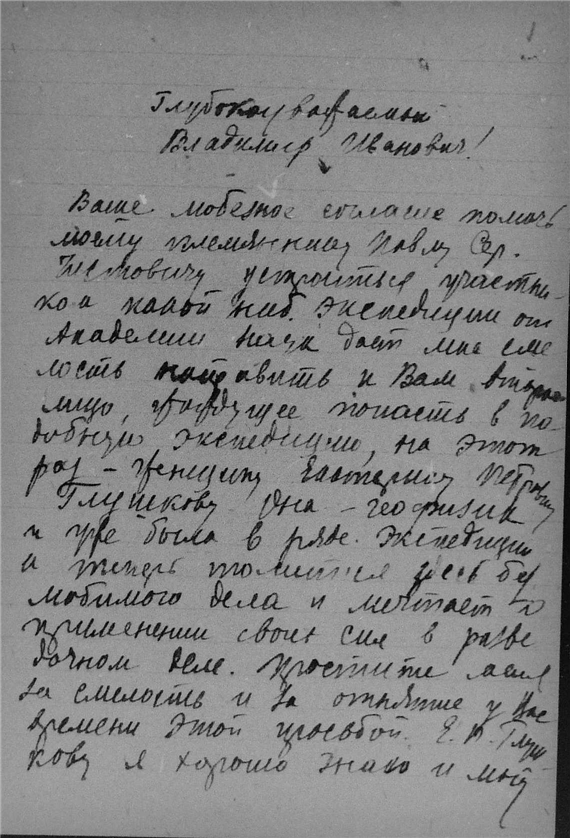 Глубокоуважаемый
Владимир Иванович!
Ваше любезное согласие помочь
моему племяннику Павлу Сер.
устроиться участни-
ком какой ниб. экспедиции от
Академии Наук дает мне сме
лость направить к Вам второе
лицо, жаждущее попасть в по
добную экспедицию, на этот
раз – женщину Екатерину Петровну
Глушкову Она – геофизик
и уже была в ряде экспедиций
и теперь томится здесь без
любимого дела и мечтает о
применении своих сил в разве
дочном деле. Простите меня
за смелость и за отнятие у Вас
времени этой просьбой. Е. П. Глуш
кову я хорошо знаю и могу